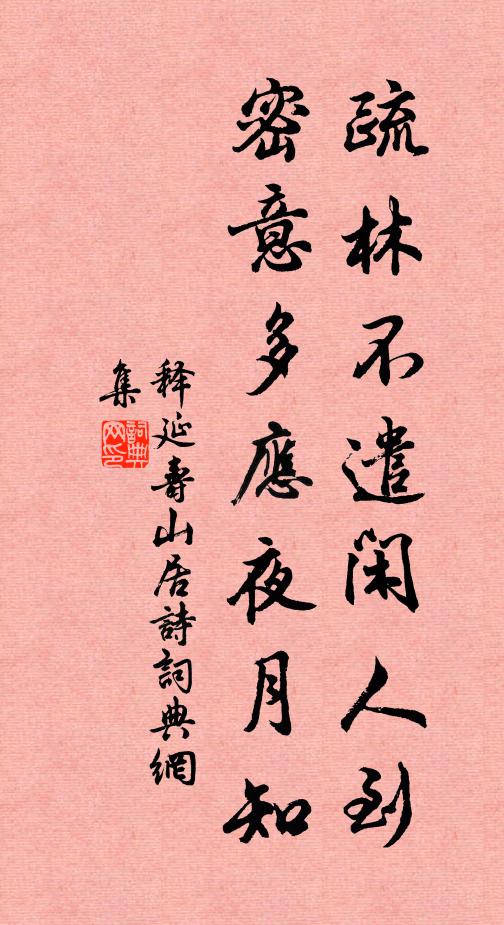 疏林不遣閑人到
密意多應夜月知
释延壽山居詩詞典網
集
詞典網印